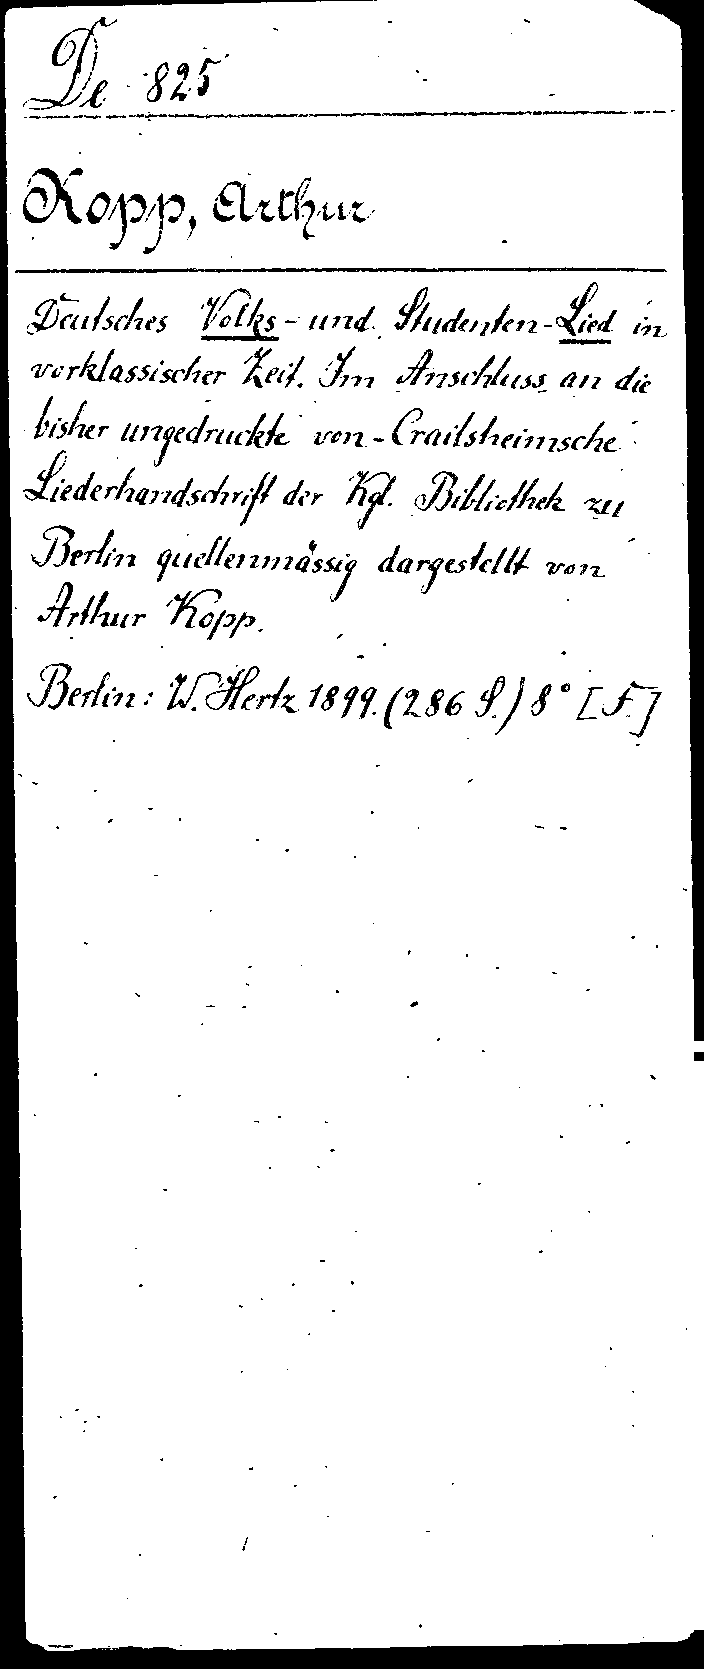 De 825
Kopp, Arthur
Deutsches Volks- und Studenten-Lied in
vorklassischer Zeit. Im Anschluss an die
bisher ungedruckte von-Crailsheimsche
Liederhandschrift der Kgl. Bibliothek zu
Berlin quellenmässig dargestellt von
Arthur Kopp.
Berlin: W. Hertz 1899. (286 S.) 8° [F.]